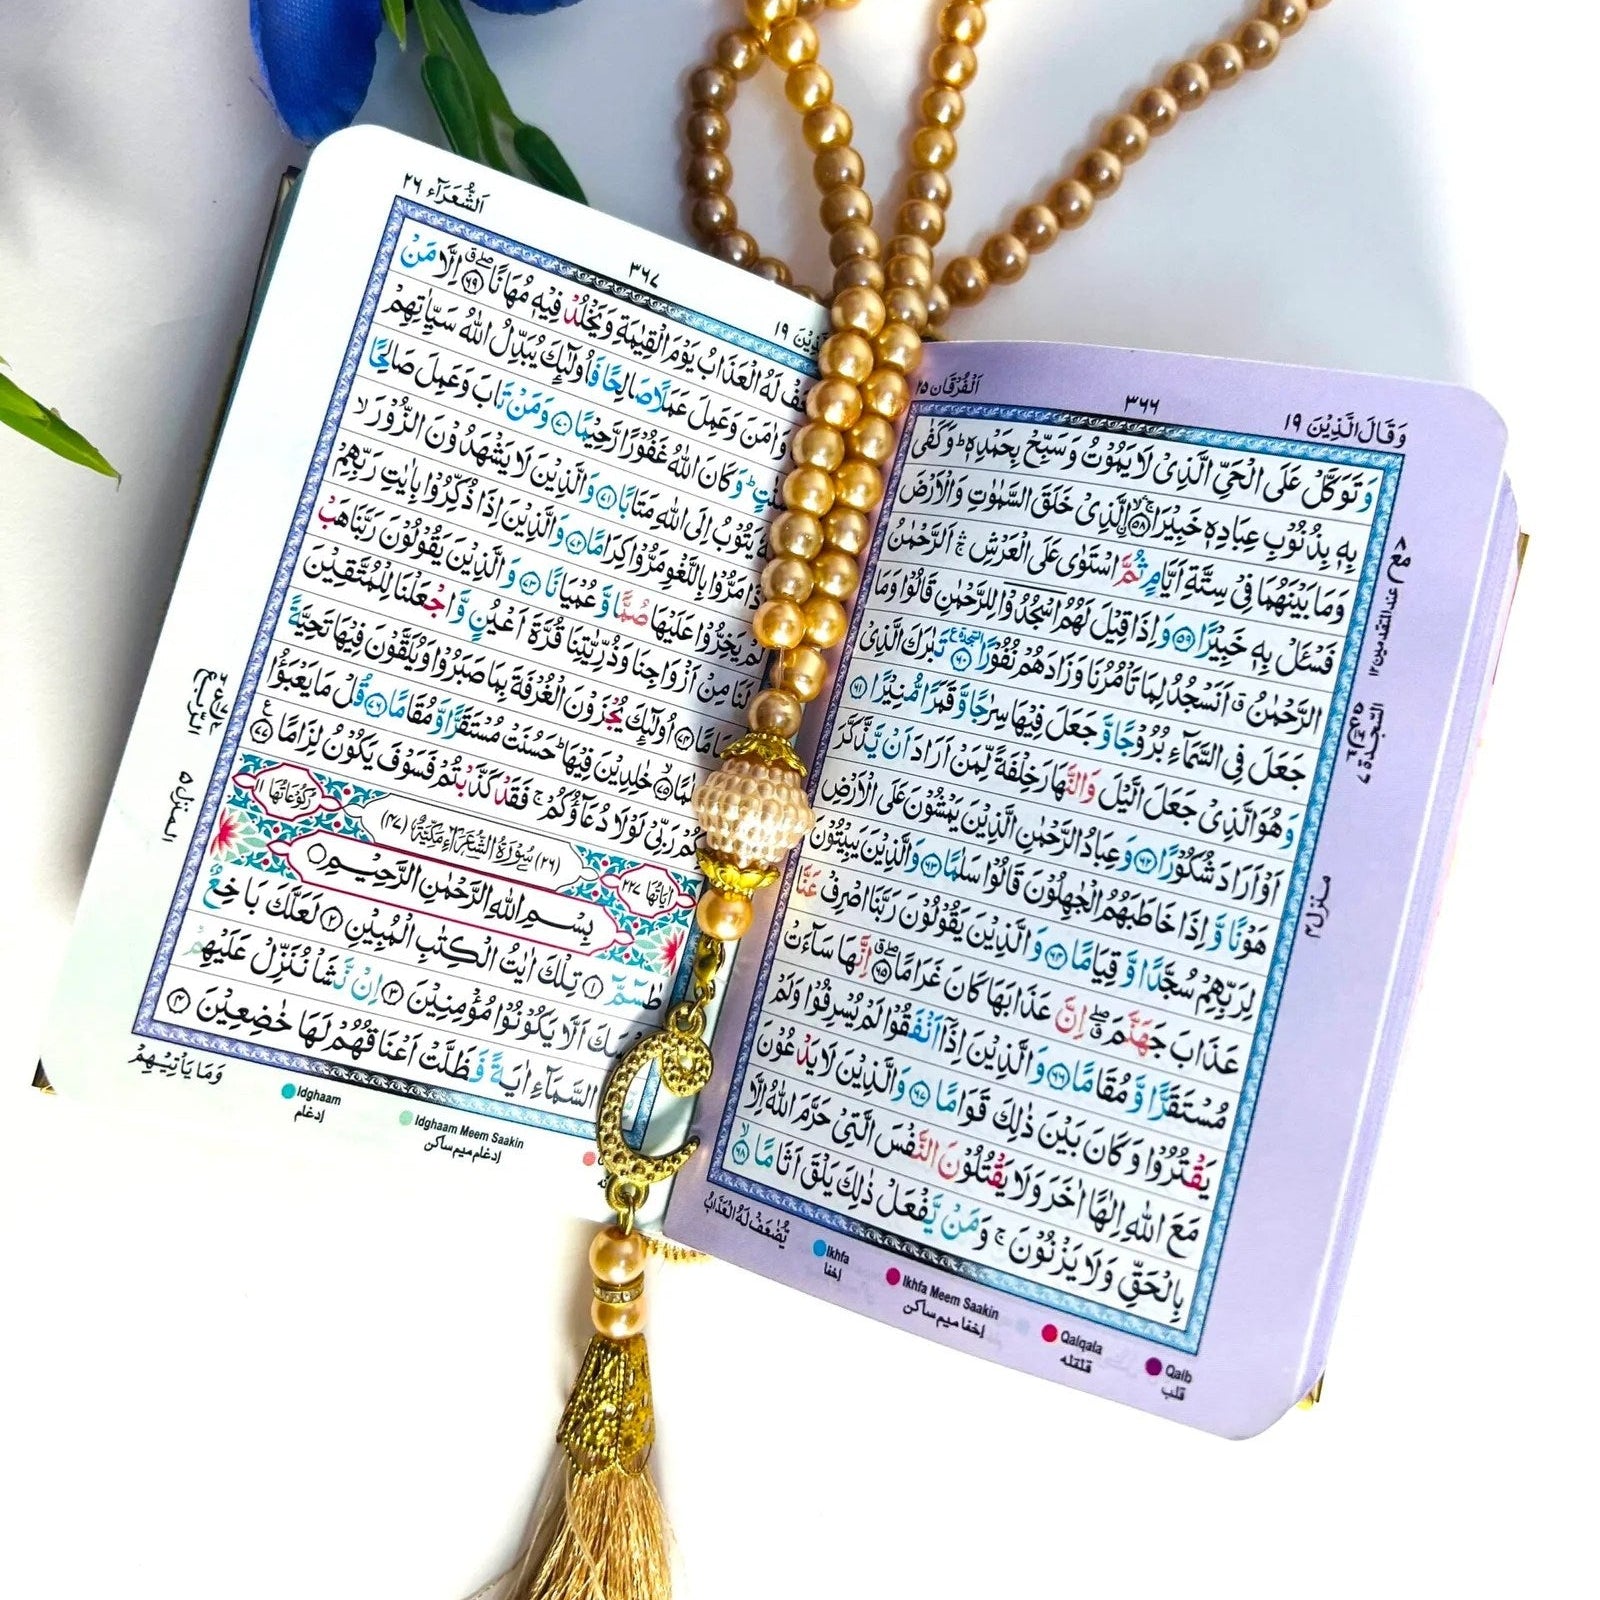 وَقَالَ الَّذِيْنَ ١٩
٣٦٦
اَلْفُرْقَان ٢٥
وَتَوَكَّلْ عَلَى الْحَيِّ الَّذِيْ لَا يَمُوْتُ وَسَبِّحْ بِحَمْدِهٖ ؕ وَكَفٰى
بِهٖ بِذُنُوْبِ عِبَادِهٖ خَبِيْرَا ۟ۙ ﴿٥٨﴾ الَّذِيْ خَلَقَ السَّمٰوٰتِ وَالْاَرْضَ
وَمَا بَيْنَهُمَا فِيْ سِتَّةِ اَيَّامٍ ثُمَّ اسْتَوٰى عَلَى الْعَرْشِ ۛۚ اَلرَّحْمٰنُ
فَسْـَٔلْ بِهٖ خَبِيْرًا ﴿٥٩﴾ وَاِذَا قِيْلَ لَهُمُ اسْجُدُوْا لِلرَّحْمٰنِ قَالُوْا وَمَا
الرَّحْمٰنُ ۗ اَنَسْجُدُ لِمَا تَاْمُرُنَا وَزَادَهُمْ نُفُوْرًا ﴿٦٠﴾ تَبٰرَكَ الَّذِيْ
جَعَلَ فِي السَّمَآءِ بُرُوْجًا وَّجَعَلَ فِيْهَا سِرٰجًا وَّقَمَرًا مُّنِيْرًا ﴿٦١﴾
وَهُوَ الَّذِيْ جَعَلَ الَّيْلَ وَالنَّهَارَ خِلْفَةً لِّمَنْ اَرَادَ اَنْ يَّذَّكَّرَ
اَوْ اَرَادَ شُكُوْرًا ﴿٦٢﴾ وَعِبَادُ الرَّحْمٰنِ الَّذِيْنَ يَمْشُوْنَ عَلَى الْاَرْضِ
هَوْنًا وَّاِذَا خَاطَبَهُمُ الْجٰهِلُوْنَ قَالُوْا سَلٰمًا ﴿٦٣﴾ وَالَّذِيْنَ يَبِيْتُوْنَ
لِرَبِّهِمْ سُجَّدًا وَّقِيَامًا ﴿٦٤﴾ وَالَّذِيْنَ يَقُوْلُوْنَ رَبَّنَا اصْرِفْ عَنَّا
عَذَابَ جَهَنَّمَ ۖۗ اِنَّ عَذَابَهَا كَانَ غَرَامًا ﴿٦٥﴾ اِنَّهَا سَآءَتْ
مُسْتَقَرًّا وَّمُقَامًا ﴿٦٦﴾ وَالَّذِيْنَ اِذَآ اَنْفَقُوْا لَمْ يُسْرِفُوْا وَلَمْ
يَقْتُرُوْا وَكَانَ بَيْنَ ذٰلِكَ قَوَامًا ﴿٦٧﴾ وَالَّذِيْنَ لَا يَدْعُوْنَ
مَعَ اللّٰهِ اِلٰهًا اٰخَرَ وَلَا يَقْتُلُوْنَ النَّفْسَ الَّتِيْ حَرَّمَ اللّٰهُ اِلَّا
بِالْحَقِّ وَلَا يَزْنُوْنَ ۚ وَمَنْ يَّفْعَلْ ذٰلِكَ يَلْقَ اَثَامًا ۙ ﴿٦٨﴾
يُّضٰعَفْ لَهُ الْعَذَابُ
السّجدة ٧
منزل ٤
Ikhfa
إخفا
Ikhfa Meem Saakin
إخفا ميم ساكن
Qalqala
قلقله
Qalb
قلب
١٩
٣٦٧
اَلشُّعَرَآء ٢٦
لَهُ الْعَذَابُ يَوْمَ الْقِيٰمَةِ وَيَخْلُدْ فِيْهٖ مُهَانًا ﴿٦٩﴾ اِلَّا مَنْ
وَاٰمَنَ وَعَمِلَ عَمَلًا صَالِحًا فَاُولٰٓئِكَ يُبَدِّلُ اللّٰهُ سَيِّاٰتِهِمْ
وَكَانَ اللّٰهُ غَفُوْرًا رَّحِيْمًا ﴿٧٠﴾ وَمَنْ تَابَ وَعَمِلَ صَالِحًا
يَتُوْبُ اِلَى اللّٰهِ مَتَابًا ﴿٧١﴾ وَالَّذِيْنَ لَا يَشْهَدُوْنَ الزُّوْرَ ۙ
مَرُّوْا بِاللَّغْوِ مَرُّوْا كِرَامًا ﴿٧٢﴾ وَالَّذِيْنَ اِذَا ذُكِّرُوْا بِاٰيٰتِ رَبِّهِمْ
لَمْ يَخِرُّوْا عَلَيْهَا صُمًّا وَّعُمْيَانًا ﴿٧٣﴾ وَالَّذِيْنَ يَقُوْلُوْنَ رَبَّنَا هَبْ
لَنَا مِنْ اَزْوَاجِنَا وَذُرِّيّٰتِنَا قُرَّةَ اَعْيُنٍ وَّاجْعَلْنَا لِلْمُتَّقِيْنَ
﴿٧٤﴾ اُولٰٓئِكَ يُجْزَوْنَ الْغُرْفَةَ بِمَا صَبَرُوْا وَيُلَقَّوْنَ فِيْهَا تَحِيَّةً
﴿٧٥﴾ خٰلِدِيْنَ فِيْهَا ؕ حَسُنَتْ مُسْتَقَرًّا وَّمُقَامًا ﴿٧٦﴾ قُلْ مَا يَعْبَؤُا
رَبِّيْ لَوْلَا دُعَآؤُكُمْ ۚ فَقَدْ كَذَّبْتُمْ فَسَوْفَ يَكُوْنُ لِزَامًا ﴿٧٧﴾
اٰيَاتُهَا ٢٢٧
(٢٦) سُوْرَةُ الشُّعَرَآءِ مَكِّيَّةٌ (٤٧)
رُكُوْعَاتُهَا ١١
بِسْمِ اللّٰهِ الرَّحْمٰنِ الرَّحِيْمِ
طٰسٓمّٓ ﴿١﴾ تِلْكَ اٰيٰتُ الْكِتٰبِ الْمُبِيْنِ ﴿٢﴾ لَعَلَّكَ بَاخِعٌ
اَلَّا يَكُوْنُوْا مُؤْمِنِيْنَ ﴿٣﴾ اِنْ نَّشَاْ نُنَزِّلْ عَلَيْهِمْ
السَّمَآءِ اٰيَةً فَظَلَّتْ اَعْنَاقُهُمْ لَهَا خٰضِعِيْنَ ﴿٤﴾
وَمَا يَاْتِيْهِمْ
الرّبع
المنزل ٥
Idghaam
إدغام
Idghaam Meem Saakin
إدغام ميم ساكن